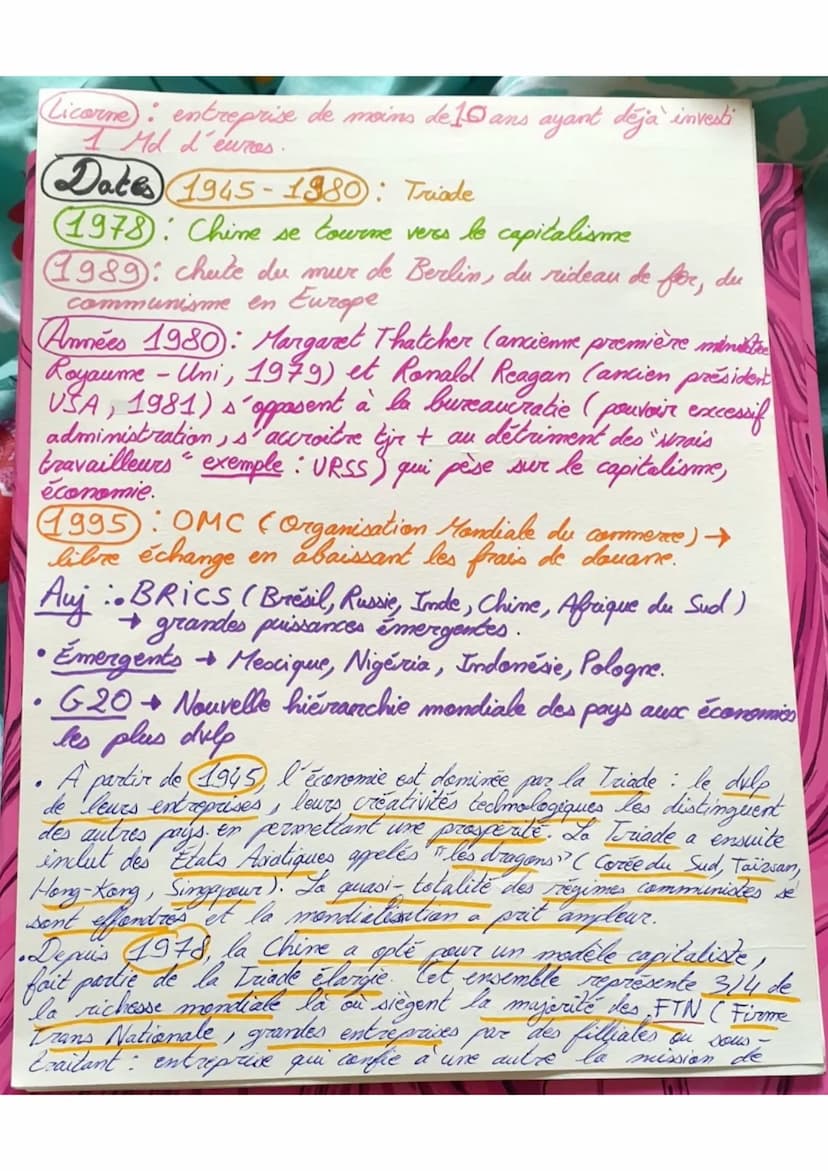 Licorne : entreprise de moins de 10 ans ayant déjà investi
1 Md d'euros.
Dates 1945-1980 : Triade
1978 : Chine se tourne vers le capitalisme
1989 : chute du mur de Berlin, du rideau de fer, du
communisme en Europe
Années 1980 : Margaret Thatcher (ancienne première ministre
Royaume-Uni, 1979) et Ronald Reagan (ancien président
USA, 1981) s'opposent à la bureaucratie (pouvoir excessif
administration, s'accroitre tjr + au détriment des "vrais
travailleurs" exemple : URSS) qui pèse sur le capitalisme,
économie.
1995 : OMC (Organisation Mondiale du commerce) →
libre échange en abaissant les frais de douane.
Auj : • BRiCS (Brésil, Russie, Inde, Chine, Afrique du Sud)
→ grandes puissances émergentes.
• Émergents → Mexique, Nigéria, Indonésie, Pologne.
• G20 → Nouvelle hiérarchie mondiale des pays aux économies
les plus dvlp
• À partir de 1945, l'économie est dominée par la Triade : le dvlp
de leurs entreprises, leurs créativités technologiques les distinguent
des autres pays. en permettant une prospérité. La Triade a ensuite
inclut des États Asiatiques appelés "les dragons" (Corée du Sud, Taïwan,
Hong-Kong, Singapour). La quasi-totalité des régimes communistes se
sont effondrés et la mondialisation a prit ampleur.
• Depuis 1978, la Chine a opté pour un modèle capitaliste,
fait partie de la Triade élargie. Cet ensemble représente 3/4 de
la richesse mondiale là où siègent la majorité des FTN (Firme
Trans Nationale, grandes entreprises par des filliales ou sous-
traitant : entreprise qui confie à une autre la mission de